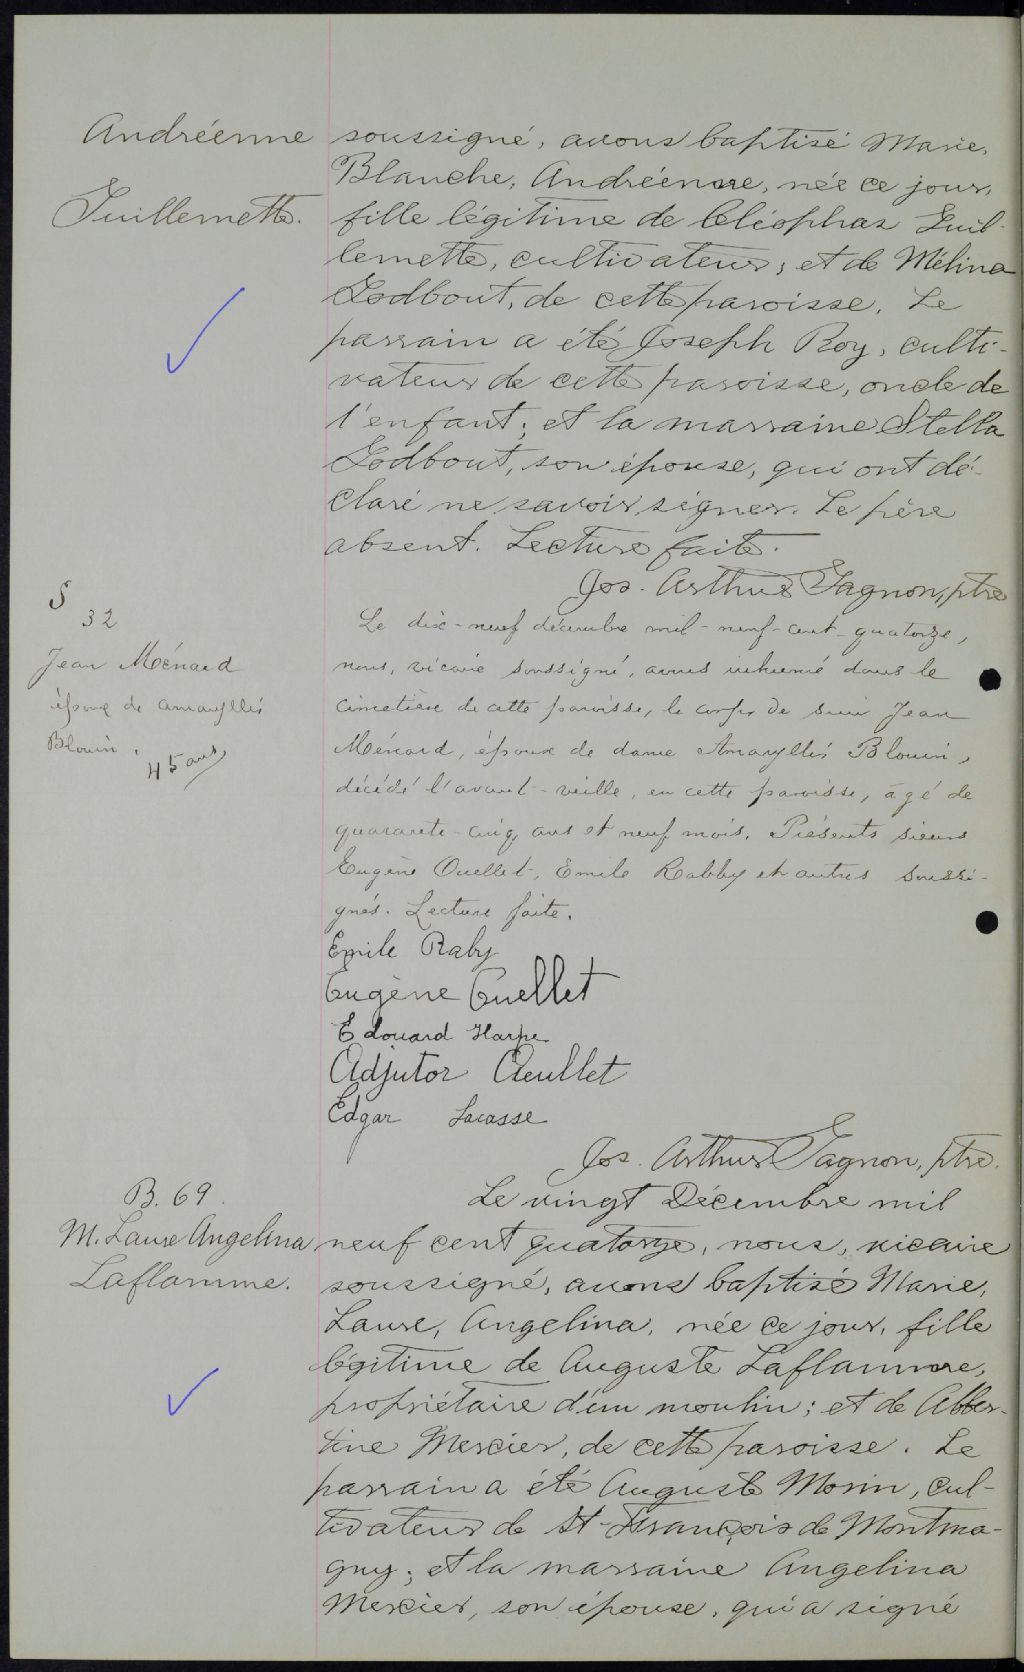 Andréenne
Guillemette.
soussigné, avons baptisé Marie,
Blanche, Andréenne, née ce jour,
fille légitime de Cléophas Guil-
lemette, cultivateur, et de Mélina
Godbout, de cette paroisse. Le
parrain a été Joseph Roy, culti-
vateur de cette paroisse, oncle de
l'enfant; et la marraine Stella
Godbout, son épouse, qui ont dé-
claré ne savoir signer. Le père
absent. Lecture faite.
Jos. Arthur Gagnon, ptre
S
32
Jean Ménard
époux de Amaryllis
Blouin,
45 ans
Le dix-neuf décembre mil-neuf-cent-quatorze,
nous, vicaire soussigné, avons inhumé dans le
cimetière de cette paroisse, le corps de sieur Jean
Ménard, époux de dame Amaryllis Blouin,
décédé l'avant-veille, en cette paroisse, âgé de
quarante-cinq ans et neuf mois. Présents sieurs
Eugène Ouellet, Emile Rabby et autres soussi-
gnés. Lecture faite.
Emile Raby
Eugène Ouellet
Edouard Harpe
Adjutor Oeullet
Edgar Lacasse
Jos. Arthur Gagnon, ptre.
B. 69.
M. Laure Angelina
Laflamme.
Le vingt Décembre mil
neuf cent quatorze, nous, vicaire
soussigné, avons baptisé Marie,
Laure, Angelina, née ce jour, fille
légitime de Auguste Laflamme,
propriétaire d'un moulin; et de Alber-
tine Mercier, de cette paroisse. Le
parrain a été Auguste Morin, cul-
tivateur de St-François de Montma-
gny; et la marraine Angelina
Mercier, son épouse, qui a signé